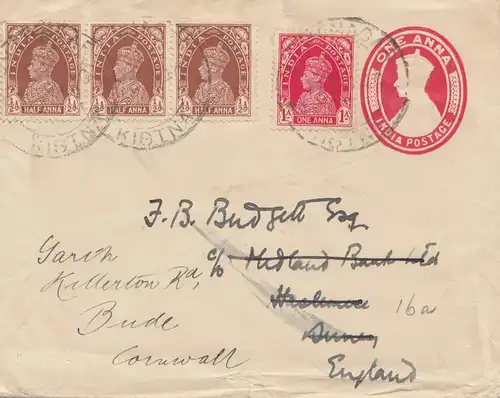 INDIA POSTAGE
½A HALF ANNA ½A
INDIA POSTAGE
½A HALF ANNA ½A
INDIA POSTAGE
½A HALF ANNA ½A
INDIA POSTAGE
1A ONE ANNA 1A
ONE ANNA
INDIA POSTAGE
KISTNA
F. B. Budgett Esq.
c/o Midland Bank Ltd
16a
England
Killerton Rd,
Bude
Cornwall